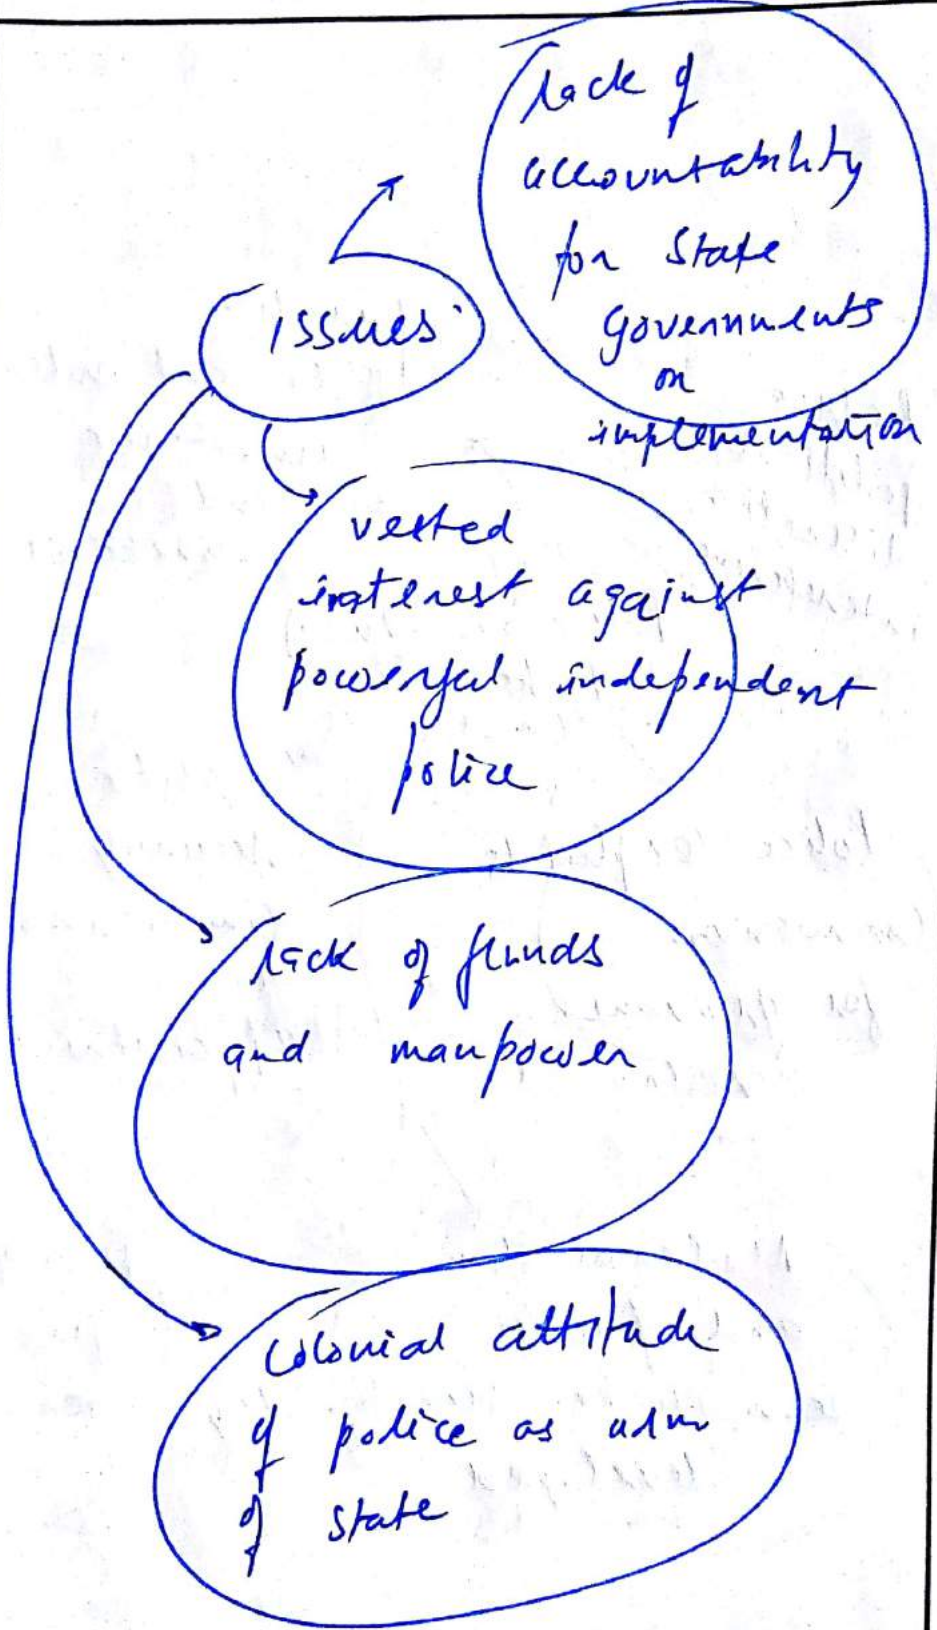 lack of
accountability
for State
governments
on
implementation
issues
vested
interest against
powerful independent
police
lack of funds
and manpower
colonial attitude
of police as
of state